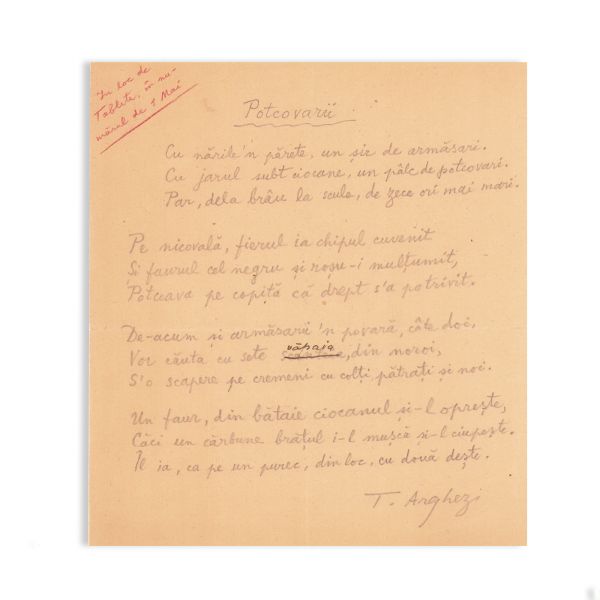 In loc de
Tablete, în nu-
mărul de 1 Mai
Potcovarii
Cu nările'n părete, un șir de armăsari.
Cu jarul subt ciocane, un pâlc de potcovari.
Par, dela brâu la scule, de zece ori mai mari.
Pe nicovală, fierul ia chipul cuvenit
Si faurul cel negru și roșu-i mulțumit,
Potcava pe copită că drept s'a potrivit.
De-acum și armăsarii 'n povară, câte doi,
văpaia
Vor căuta cu sete, din noroi,
S'o scapere pe cremeni cu colți pătrați și noi.
Un faur, din bătaie ciocanul și-l oprește,
Căci un cărbune brațul i-l mușcă și-l ciupește.
Îl ia, ca pe un purec, din loc, cu două dește.
T. Arghezi